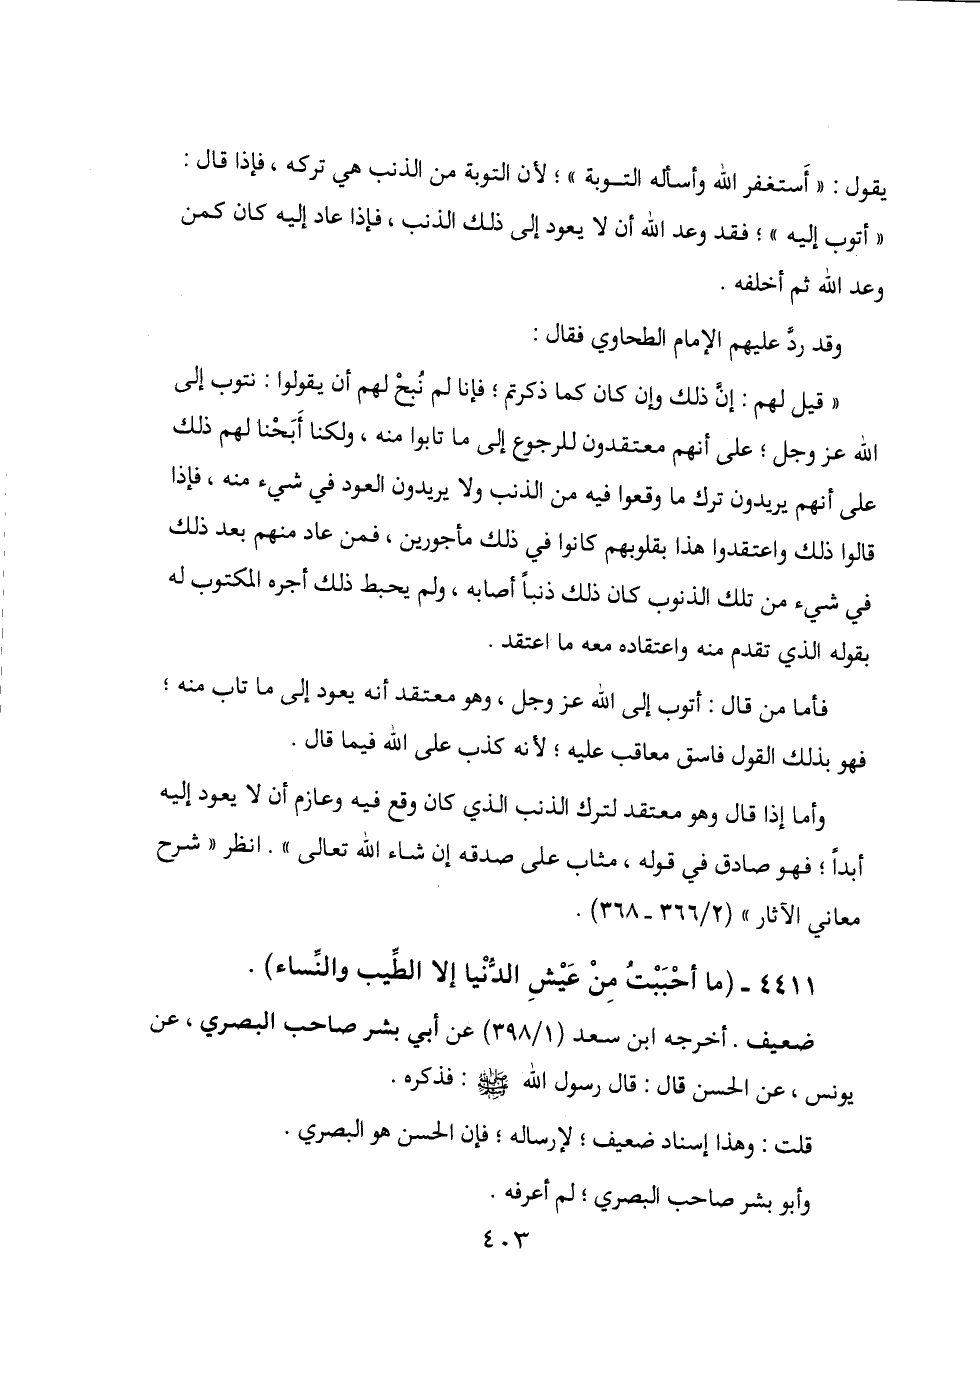 يقول : « أَستغفر الله وأسأله التوبة » ؛ لأن التوبة من الذنب هي تركه ، فإذا قال :
« أتوب إليه » ؛ فقد وعد الله أن لا يعود إلى ذلك الذنب ، فإذا عاد إليه كان كمن
وعد الله ثم أخلفه .
وقد ردَّ عليهم الإمام الطحاوي فقال :
« قيل لهم : إنَّ ذلك وإن كان كما ذكرتم ؛ فإنا لم نُبحْ لهم أن يقولوا : نتوب إلى
الله عز وجل ؛ على أنهم معتقدون للرجوع إلى ما تابوا منه ، ولكنا أَبَحْنا لهم ذلك
على أنهم يريدون ترك ما وقعوا فيه من الذنب ولا يريدون العود في شيء منه ، فإذا
قالوا ذلك واعتقدوا هذا بقلوبهم كانوا في ذلك مأجورين ، فمن عاد منهم بعد ذلك
في شيء من تلك الذنوب كان ذلك ذنباً أصابه ، ولم يحبط ذلك أجره المكتوب له
بقوله الذي تقدم منه واعتقاده معه ما اعتقد .
فأما من قال : أتوب إلى الله عز وجل ، وهو معتقد أنه يعود إلى ما تاب منه ؛
فهو بذلك القول فاسق معاقب عليه ؛ لأنه كذب على الله فيما قال .
وأما إذا قال وهو معتقد لترك الذنب الذي كان وقع فيه وعازم أن لا يعود إليه
أبداً ؛ فهو صادق في قوله ، مثاب على صدقه إن شاء الله تعالى » . انظر « شرح
معاني الآثار » (٣٦٦/٢ ـ ٣٦٨) .
٤٤١١ ـ (ما أحْبَبْتُ مِنْ عَيْشِ الدُّنْيا إلا الطِّيب والنِّساء) .
ضعيف . أخرجه ابن سعد (٣٩٨/١) عن أبي بشر صاحب البصري ، عن
يونس ، عن الحسن قال : قال رسول الله ﷺ : فذكره .
قلت : وهذا إسناد ضعيف ؛ لإرساله ؛ فإن الحسن هو البصري .
وأبو بشر صاحب البصري ؛ لم أعرفه .
٤٠٣